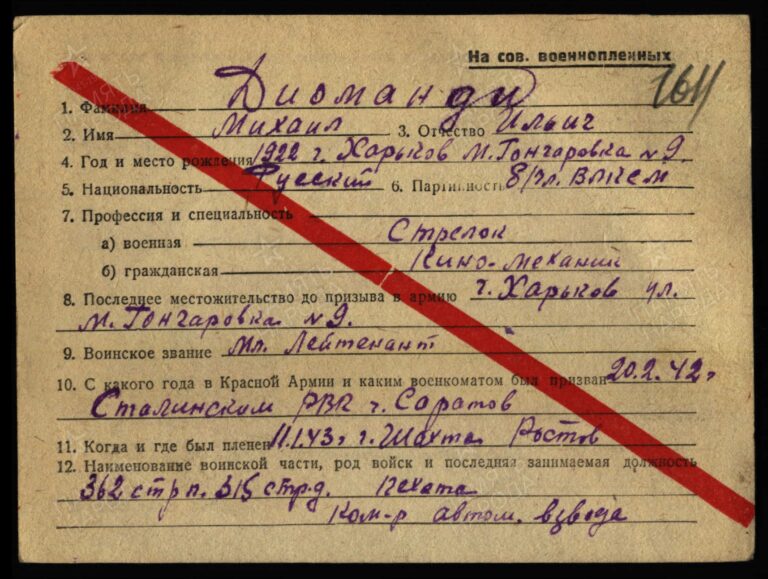 На сов. военнопленных
1611
1. Фамилия Диоманди
2. Имя Михаил 3. Отчество Ильич
4. Год и место рождения 1922 г. Харьков М. Гончаровка № 9.
5. Национальность Русский 6. Партийность б/чл. ВЛКСМ
7. Профессия и специальность
а) военная Стрелок
б) гражданская Кино-механик
8. Последнее местожительство до призыва в армию г. Харьков ул.
М. Гончаровка № 9.
9. Воинское звание Мл. Лейтенант
10. С какого года в Красной Армии и каким военкоматом был призван 20.2.42 г
Сталинским РВК г. Саратов
11. Когда и где был пленен 11.1.43 г. г. Шахта Ростов
12. Наименование воинской части, род войск и последняя занимаемая должность
362 стр п. 315 стр.д. пехота
Ком-р автом. взвода